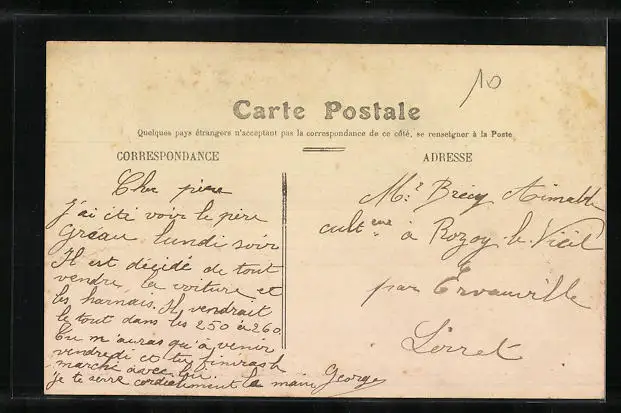 10
Carte Postale
Quelques pays étrangers n'acceptant pas la correspondance de ce côté, se renseigner à la Poste
CORRESPONDANCE
Cher père
J'ai été voir le père
Gréau lundi soir
Il est décidé de tout
vendre la voiture et
les harnais. Il vendrait
le tout dans les 250 à 260
Tu n'auras qu'à venir
vendredi et tu finiras
marché avec lui.
je te serre cordialement la main Georges
ADRESSE
Mr Brécy Aimable
culteur à Rozoy le Vieil
par Ervauville
Loiret